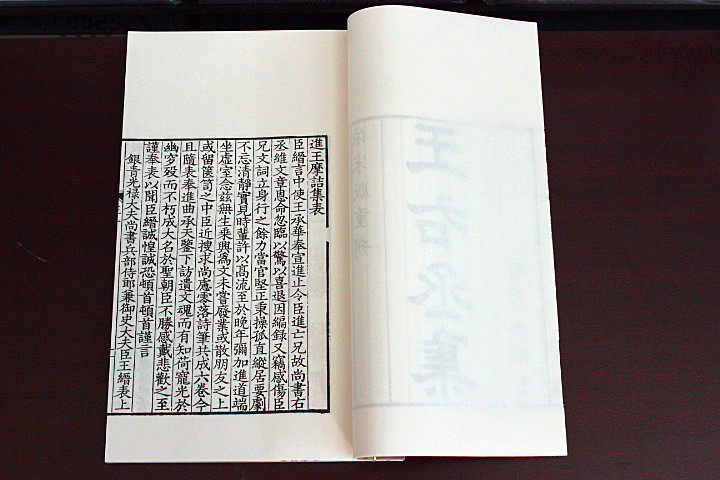 進王摩詰集表
臣縉言中使王承華奉宣進止令臣進亡兄故尚書右
丞維文章恩命忽臨以驚以喜退因編録又竊感傷臣
兄文詞立身行之餘力當官堅正秉操孤直縱居要劇
不忘清靜實見時輩許以高流至於晚年彌加進道端
坐虛室念兹無生乘興爲文未嘗廢業或散朋友之上
或留篋笥之中臣近搜求尚慮零落詩筆共成六卷今
且隨表奉進曲承天鑒下訪遺文魂而有知荷寵光於
幽穸殁而不朽成大名於聖朝臣不勝感戴悲歡之至
謹奉表以聞臣縉誠惶誠恐頓首頓首謹言
銀青光禄大夫尚書兵部侍郎兼御史大夫臣王縉表上
王右丞集